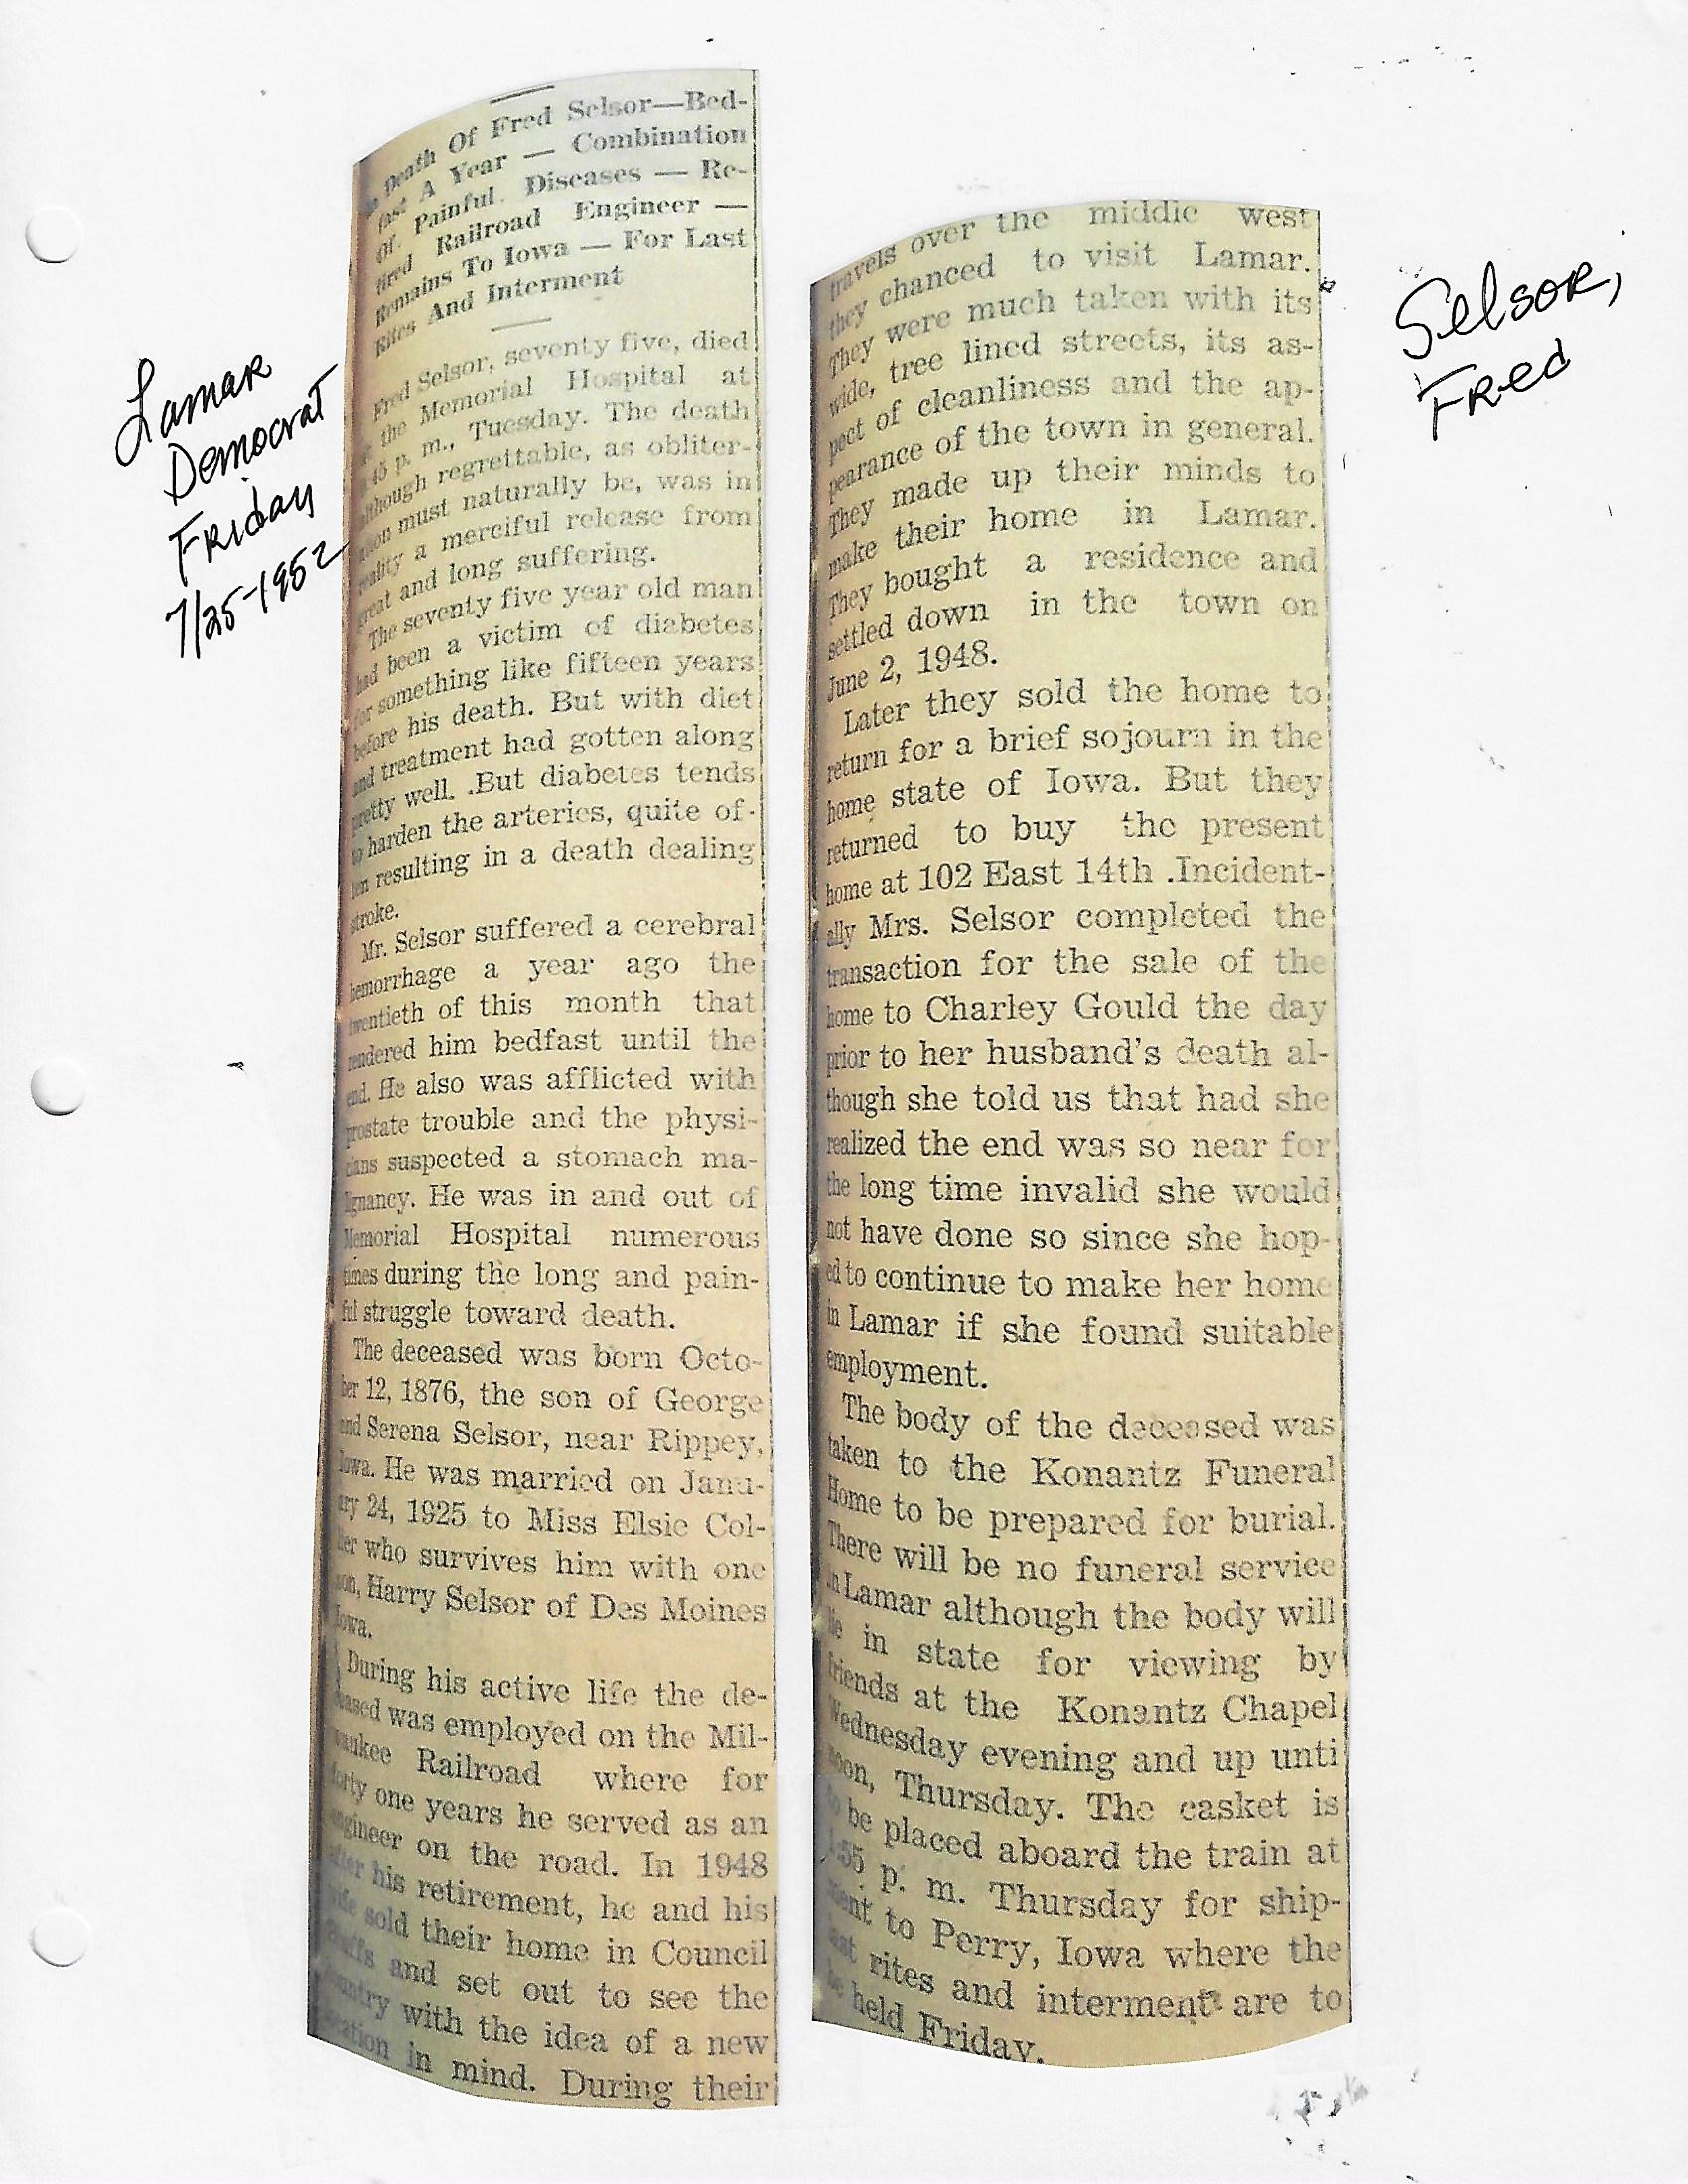 Lamar
Democrat
Friday
7/25-1952
Death Of Fred Selsor—Bed-
fast A Year — Combination
Of Painful Diseases — Re-
tired Railroad Engineer —
Remains To Iowa — For Last
Rites And Interment
Fred Selsor, seventy five, died
the Memorial Hospital at
45 p. m., Tuesday. The death
although regrettable, as obliter-
ation must naturally be, was in
reality a merciful release from
great and long suffering.
The seventy five year old man
had been a victim of diabetes
for something like fifteen years
before his death. But with diet
and treatment had gotten along
pretty well. .But diabetes tends
to harden the arteries, quite of-
ten resulting in a death dealing
stroke.
Mr. Selsor suffered a cerebral
hemorrhage a year ago the
twentieth of this month that
rendered him bedfast until the
end. He also was afflicted with
prostate trouble and the physi-
cians suspected a stomach ma-
lignancy. He was in and out of
Memorial Hospital numerous
times during the long and pain-
ful struggle toward death.
The deceased was born Octo-
ber 12, 1876, the son of George
and Serena Selsor, near Rippey,
Iowa. He was married on Janu-
ary 24, 1925 to Miss Elsie Col-
who survives him with one
son, Harry Selsor of Des Moines
Iowa.
During his active life the de-
ceased was employed on the Mil-
waukee Railroad where for
forty one years he served as an
engineer on the road. In 1948
after his retirement, he and his
wife sold their home in Council
Bluffs and set out to see the
country with the idea of a new
location in mind. During their
travels over the middle west
they chanced to visit Lamar.
They were much taken with its
wide, tree lined streets, its as-
pect of cleanliness and the ap-
pearance of the town in general.
They made up their minds to
make their home in Lamar.
They bought a residence and
settled down in the town on
June 2, 1948.
Later they sold the home to
return for a brief sojourn in the
home state of Iowa. But they
returned to buy the present
home at 102 East 14th .Incident-
ally Mrs. Selsor completed the
transaction for the sale of the
home to Charley Gould the day
prior to her husband's death al-
though she told us that had she
realized the end was so near for
the long time invalid she would
not have done so since she hop-
ed to continue to make her home
in Lamar if she found suitable
employment.
The body of the deceased was
taken to the Konantz Funeral
Home to be prepared for burial.
There will be no funeral service
in Lamar although the body will
lie in state for viewing by
friends at the Konantz Chapel
Wednesday evening and up unti
noon, Thursday. The casket is
to be placed aboard the train at
:55 p. m. Thursday for ship-
ment to Perry, Iowa where the
last rites and interment are to
be held Friday.
Selsor,
Fred